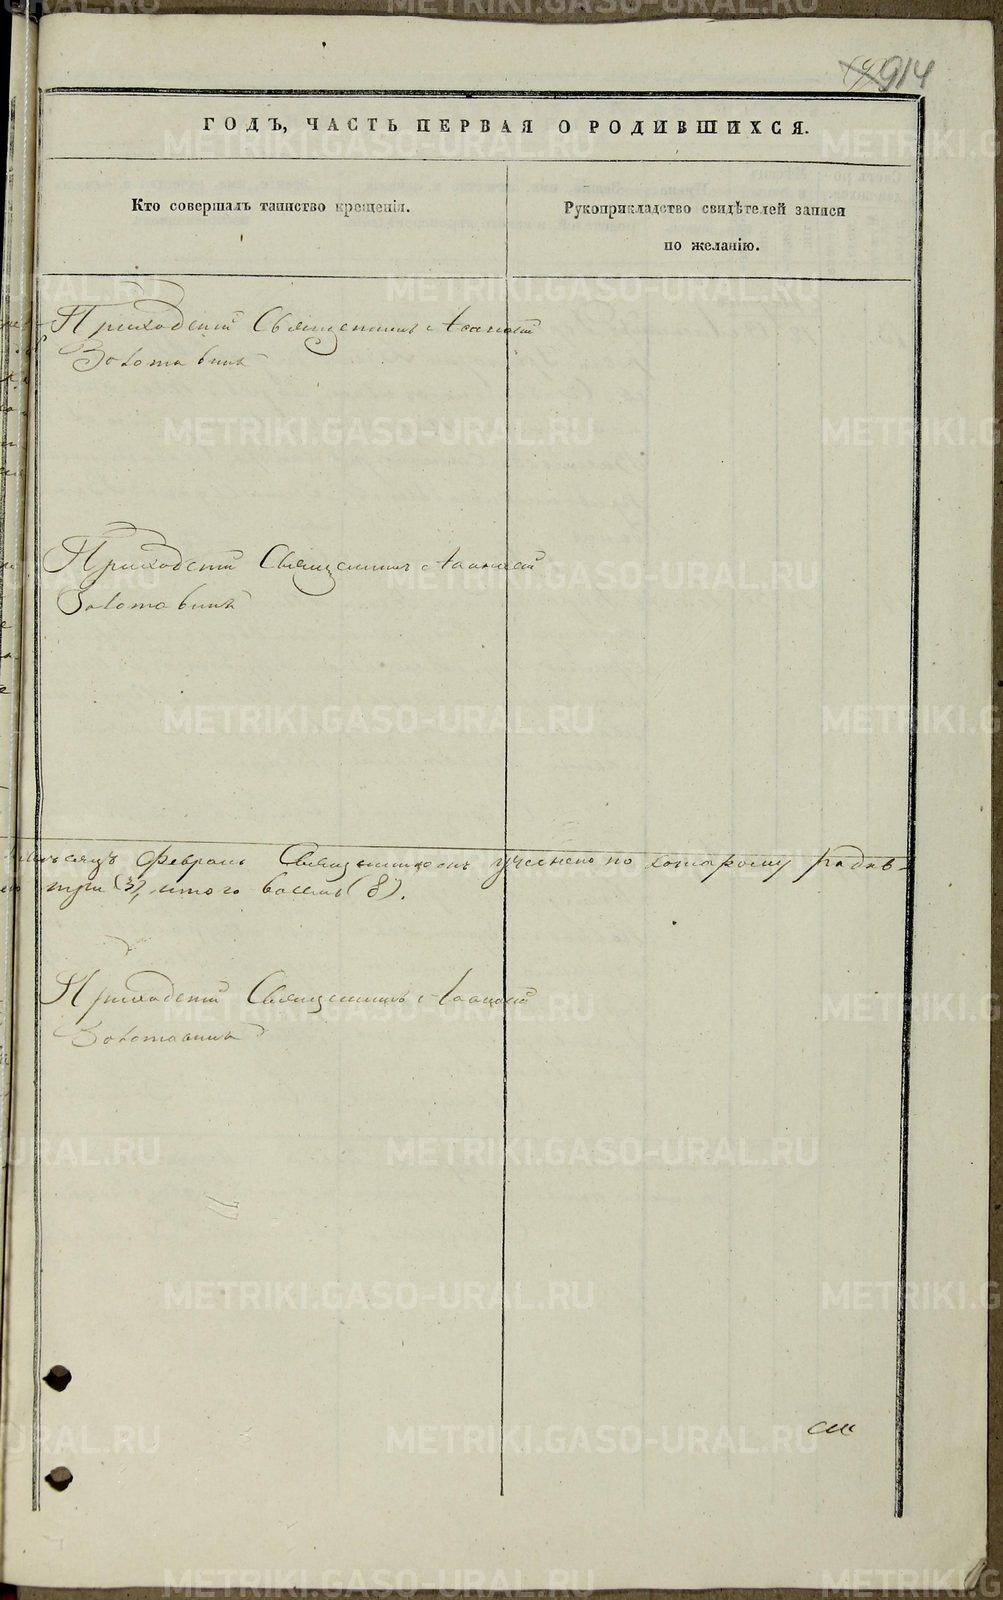 914
ГОДЪ, ЧАСТЬ ПЕРВАЯ О РОДИВШИХСЯ.
Кто совершалъ таинство крещенія.
Рукоприкладство свидѣтелей записи
по желанію.
Приходскій Священникъ Аѳанасій
Золотавинъ
Приходскій Священникъ Аѳанасій
Золотавинъ
мѣсяцъ Февраль Священникомъ учинено по которому
три (3), итого восемь (8).
Приходскій Священникъ Аѳанасій
Золотавинъ
METRIKI.GASO-URAL.RU